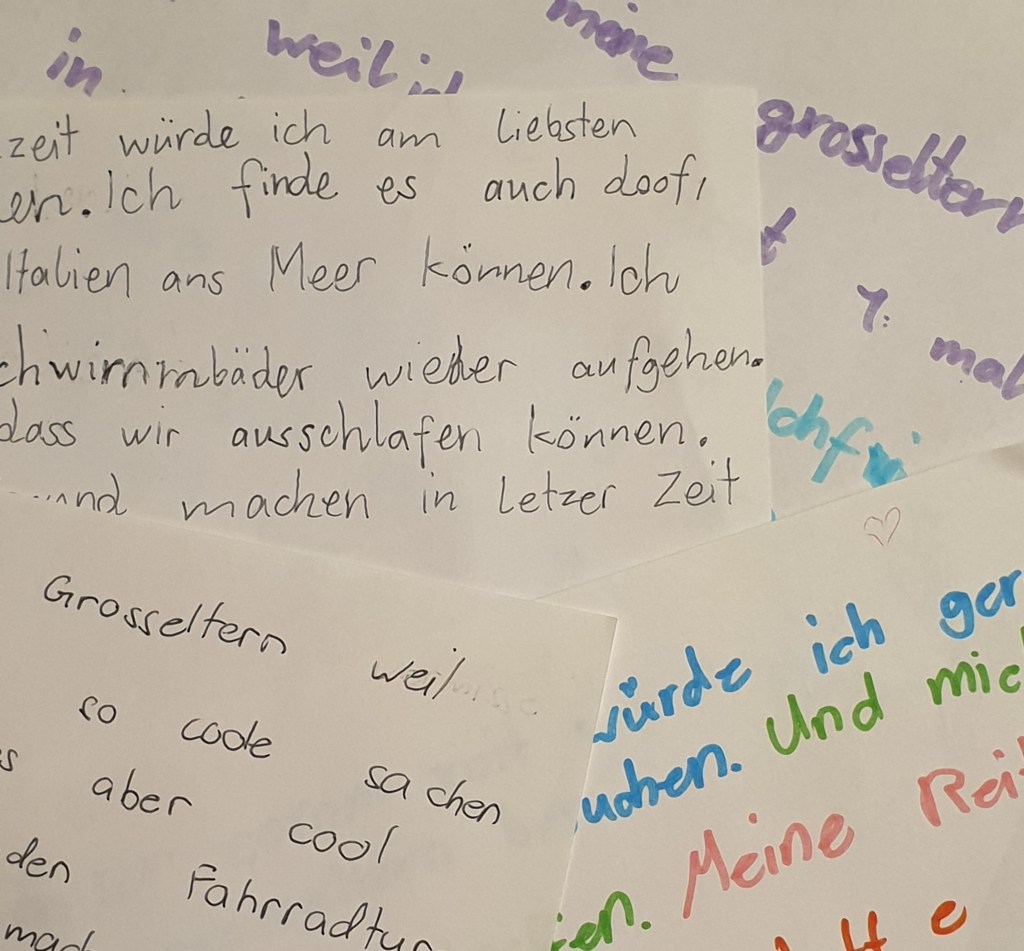 in weil meine
grosseltern
t
7: mal
Ichfr
zeit würde ich am liebsten
en. Ich finde es auch doof,
Italien ans Meer können. Ich
chwimmbäder wieder aufgehen.
dass wir ausschlafen können.
machen in letzer Zeit
Grosseltern weil
so coole sachen
s aber cool
den Fahrradtur
mach
würde ich ger
uchen. Und mic
en. Meine Reit
e